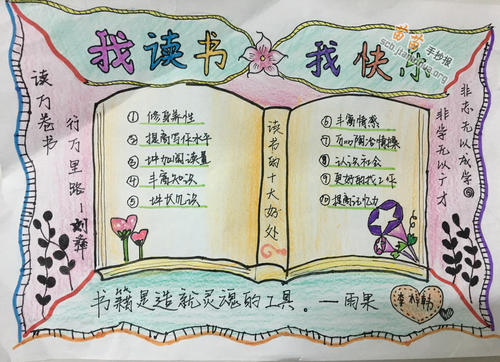 我读书
我快乐
读万卷书
行万里路-刘彝
非志无以成学
非学无以广才
读书的十大好处
① 修身养性
② 提高写作水平
③ 增加阅读量
④ 丰富知识
⑤ 增长见识
⑥ 丰富情感
⑦ 可以陶冶情操
⑧ 认识社会
⑨ 更好的找工作
⑩ 提高记忆力
书籍是造就灵魂的工具。—雨果
苗苗手抄报